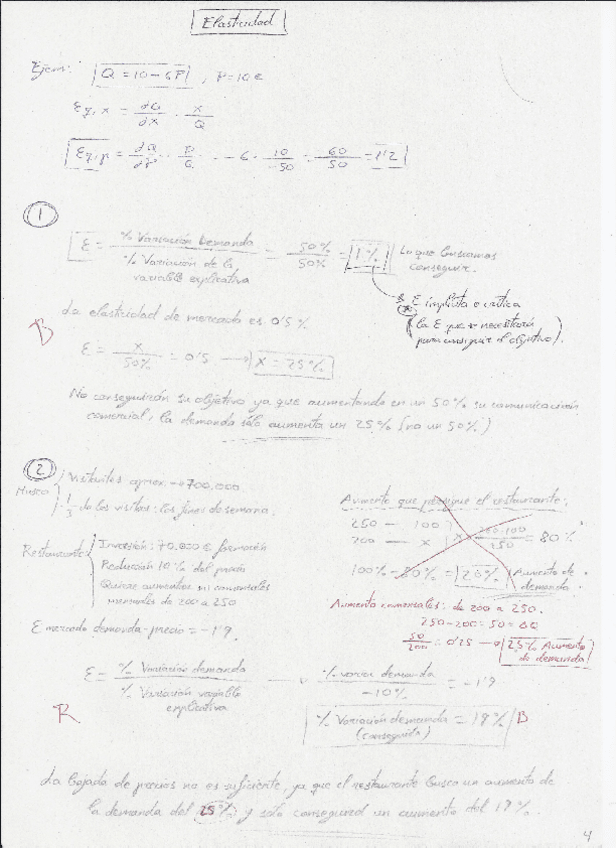 Elasticidad
Ejem: Q = 10 - 6P , P = 10 €
Eq,x = dQ/dx · x/Q
Eq,p = dQ/dP · P/Q = -6 · 10/-50 = 60/50 = 1'2
1
E = % Variación Demanda / % Variación de la variable explicativa = 50% / 50% = 1% Lo que buscamos conseguir.
E implícita o crítica
(la E que se necesitaría
para conseguir el objetivo).
B
La elasticidad de mercado es 0'5%
E = x / 50% = 0'5 → x = 25%
No conseguirán su objetivo ya que aumentando en un 50% su comunicación
comercial, la demanda sólo aumenta un 25% (no un 50%)
2
Museo
Visitantes aprox. → 700.000
1/3 de las visitas: los fines de semana.
Restaurante
Inversión: 70.000 € formación
Reducción 10% del precio
Quiere aumentar comensales
mensuales de 200 a 250
E mercado demanda-precio = -1'9.
Aumento que persigue el restaurante:
250 — 100
200 — x
x = 200·100 / 250 = 80%
100% - 80% = 20% Aumento de
demanda.
Aumento comensales: de 200 a 250.
250-200 = 50
50/200 = 0'25 → 25% Aumento
de demanda
E = % Variación demanda / % Variación variable explicativa
% variac demanda / -10% = -1'9
R
% Variación demanda = 19% B
(conseguida)
La bajada de precios no es suficiente, ya que el restaurante busca un aumento de
la demanda del 25% y sólo conseguirá un aumento del 19%.
4